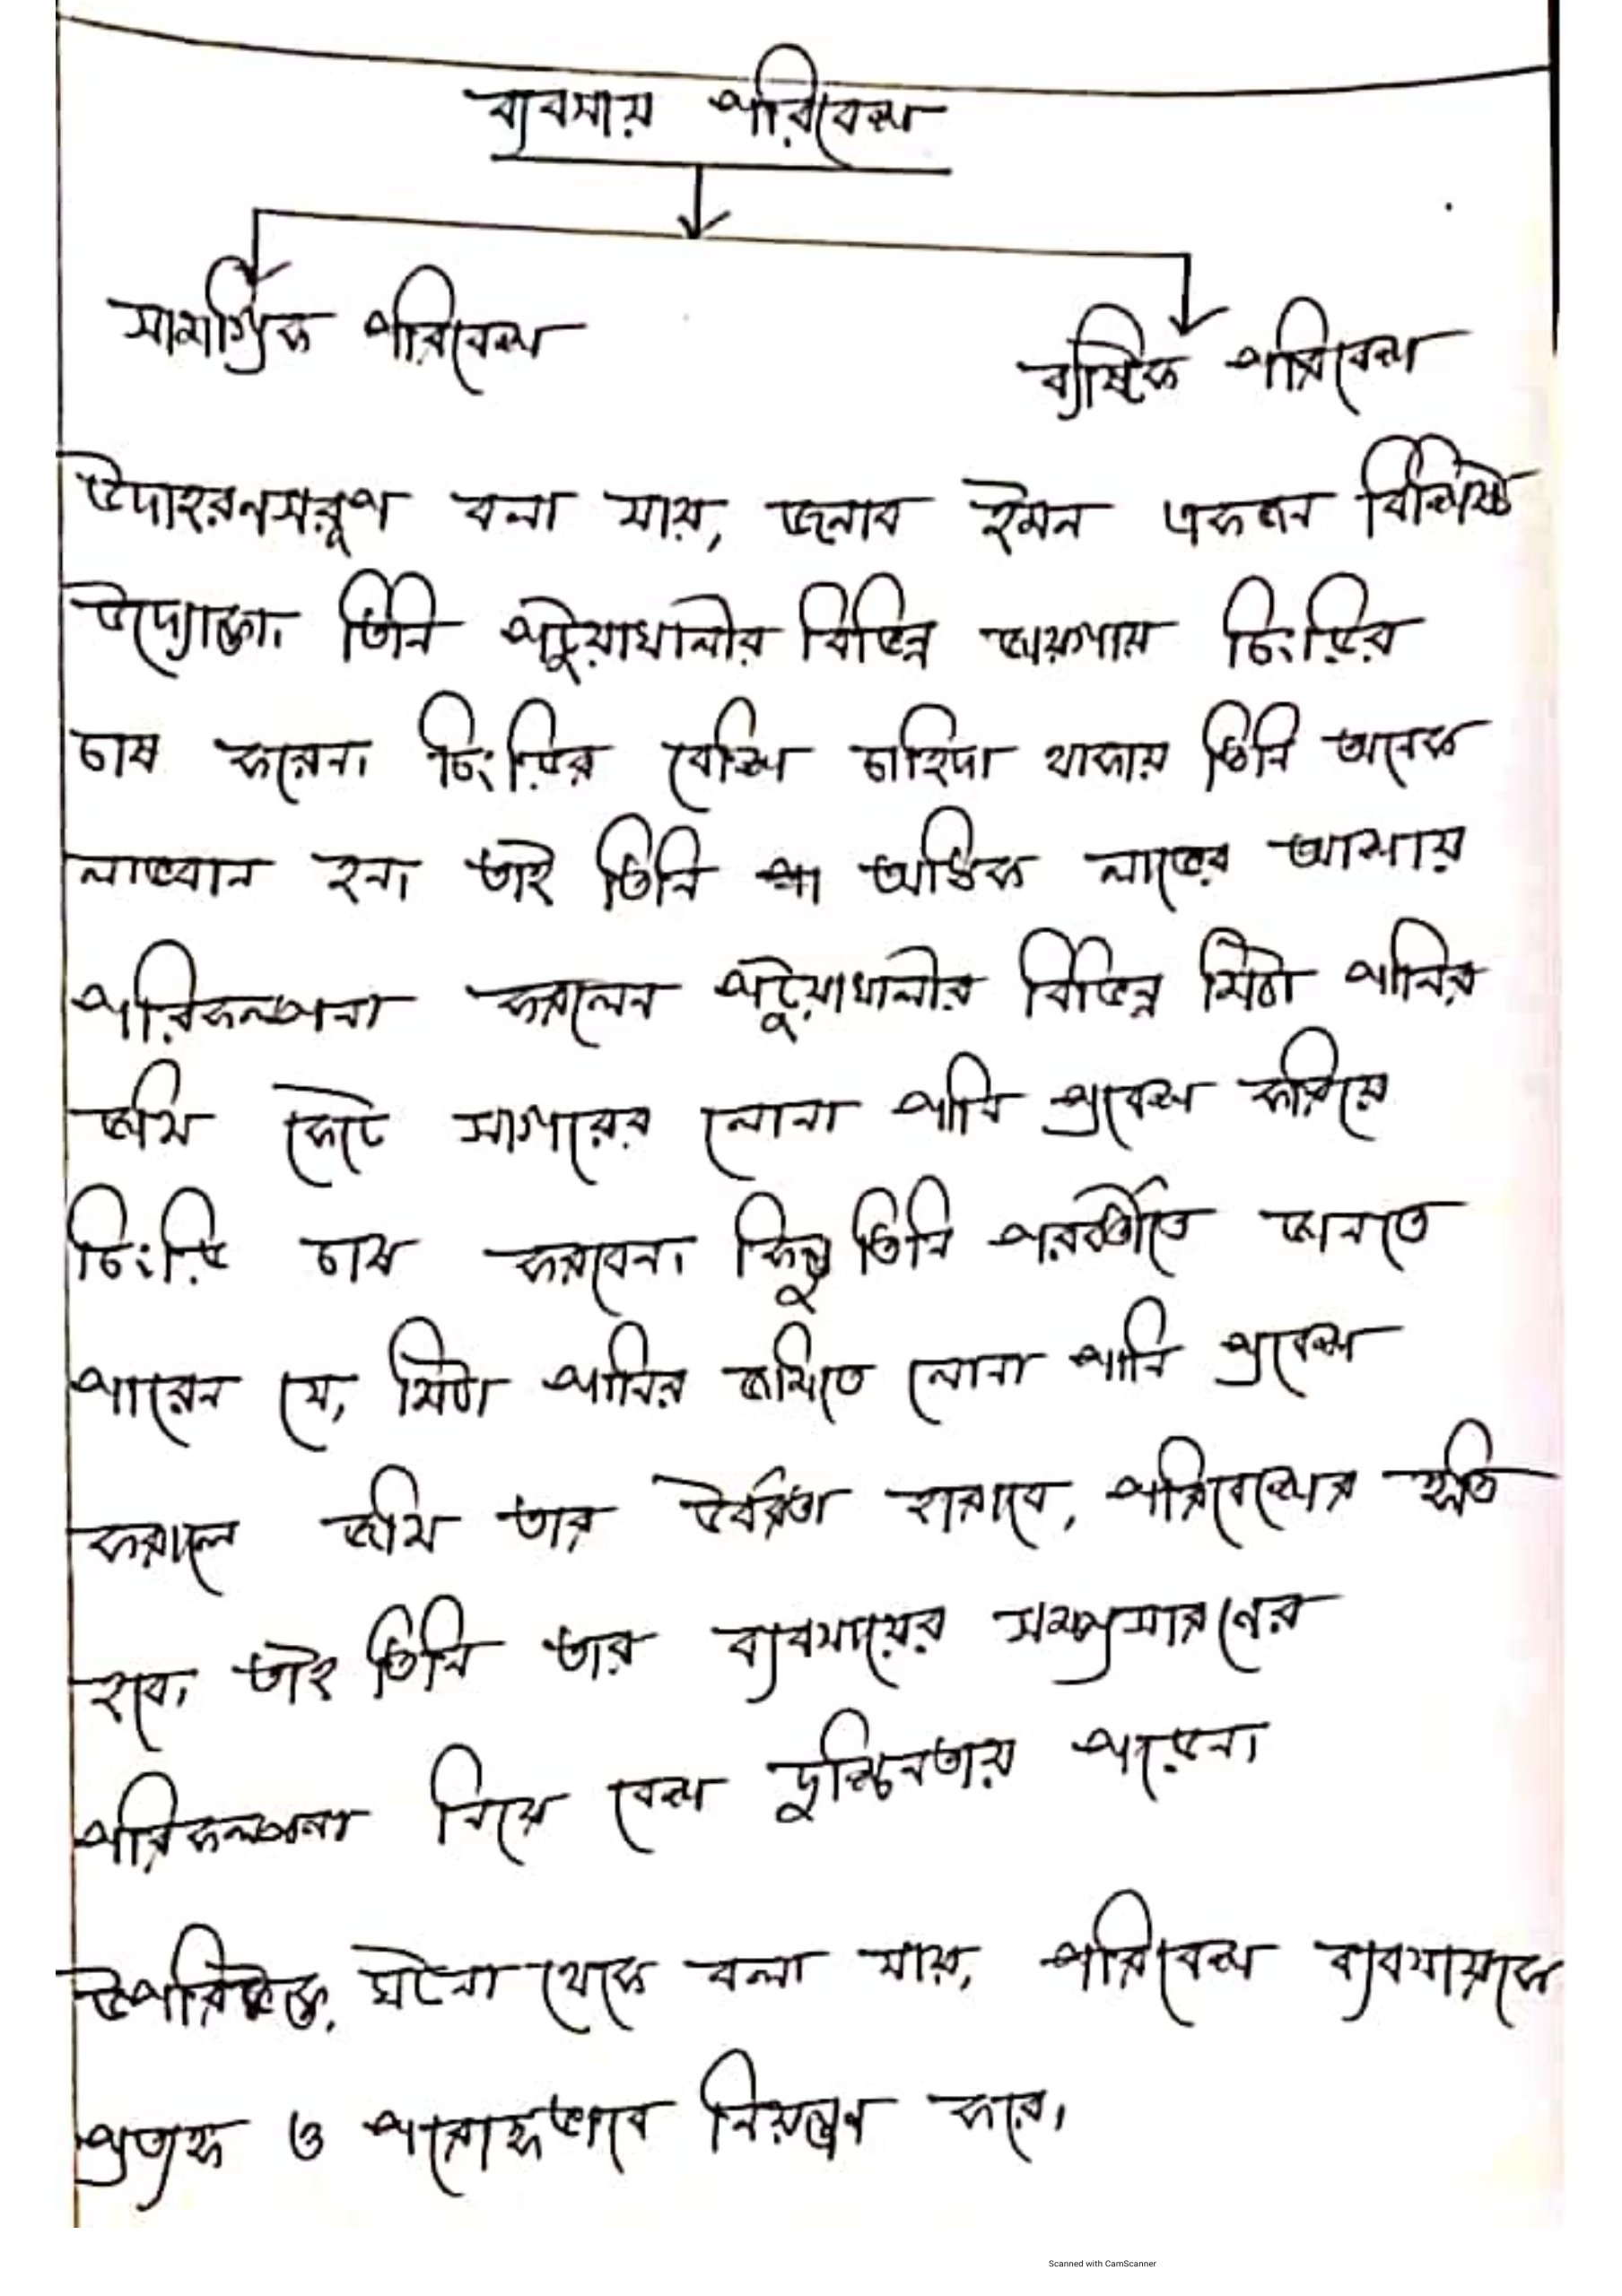 ব্যবসায় পরিবেশ
সামগ্রিক পরিবেশ
ব্যষ্টিক পরিবেশ
উদাহরনসরূপ বলা যায়, জনাব ইমন একজন বিশিষ্ট
উদ্যোক্তা। তিনি পটুয়াখালীর বিভিন্ন জায়গায় চিংড়ির
চাষ করেন। চিংড়ির বেশি চাহিদা থাকায় তিনি অনেক
লাভবান হন। তাই তিনি অধিক লাভের আসায়
পরিকল্পনা করলেন পটুয়াখালীর বিভিন্ন মিঠা পানির
জমি কেটে সাগরের লোনা পানি প্রবেশ করিয়ে
চিংড়ি চাষ করবেন। কিন্তু তিনি পরবর্তীতে জানতে
পারেন যে, মিঠা পানির জমিতে লোনা পানি প্রবেশ
করালে জমি তার উর্বরতা হারাবে, পরিবেশের ক্ষতি
হবে। তাই তিনি তার ব্যবসায়ের সম্প্রসারণের
পরিকল্পনা নিয়ে বেশ দুশ্চিনতায় পড়েন।
উপরিউক্ত, ঘটনা থেকে বলা যায়, পরিবেশ ব্যবসায়কে
প্রত্যক্ষ ও পরোক্ষভাবে নিয়ন্ত্রণ করে।
Scanned with CamScanner